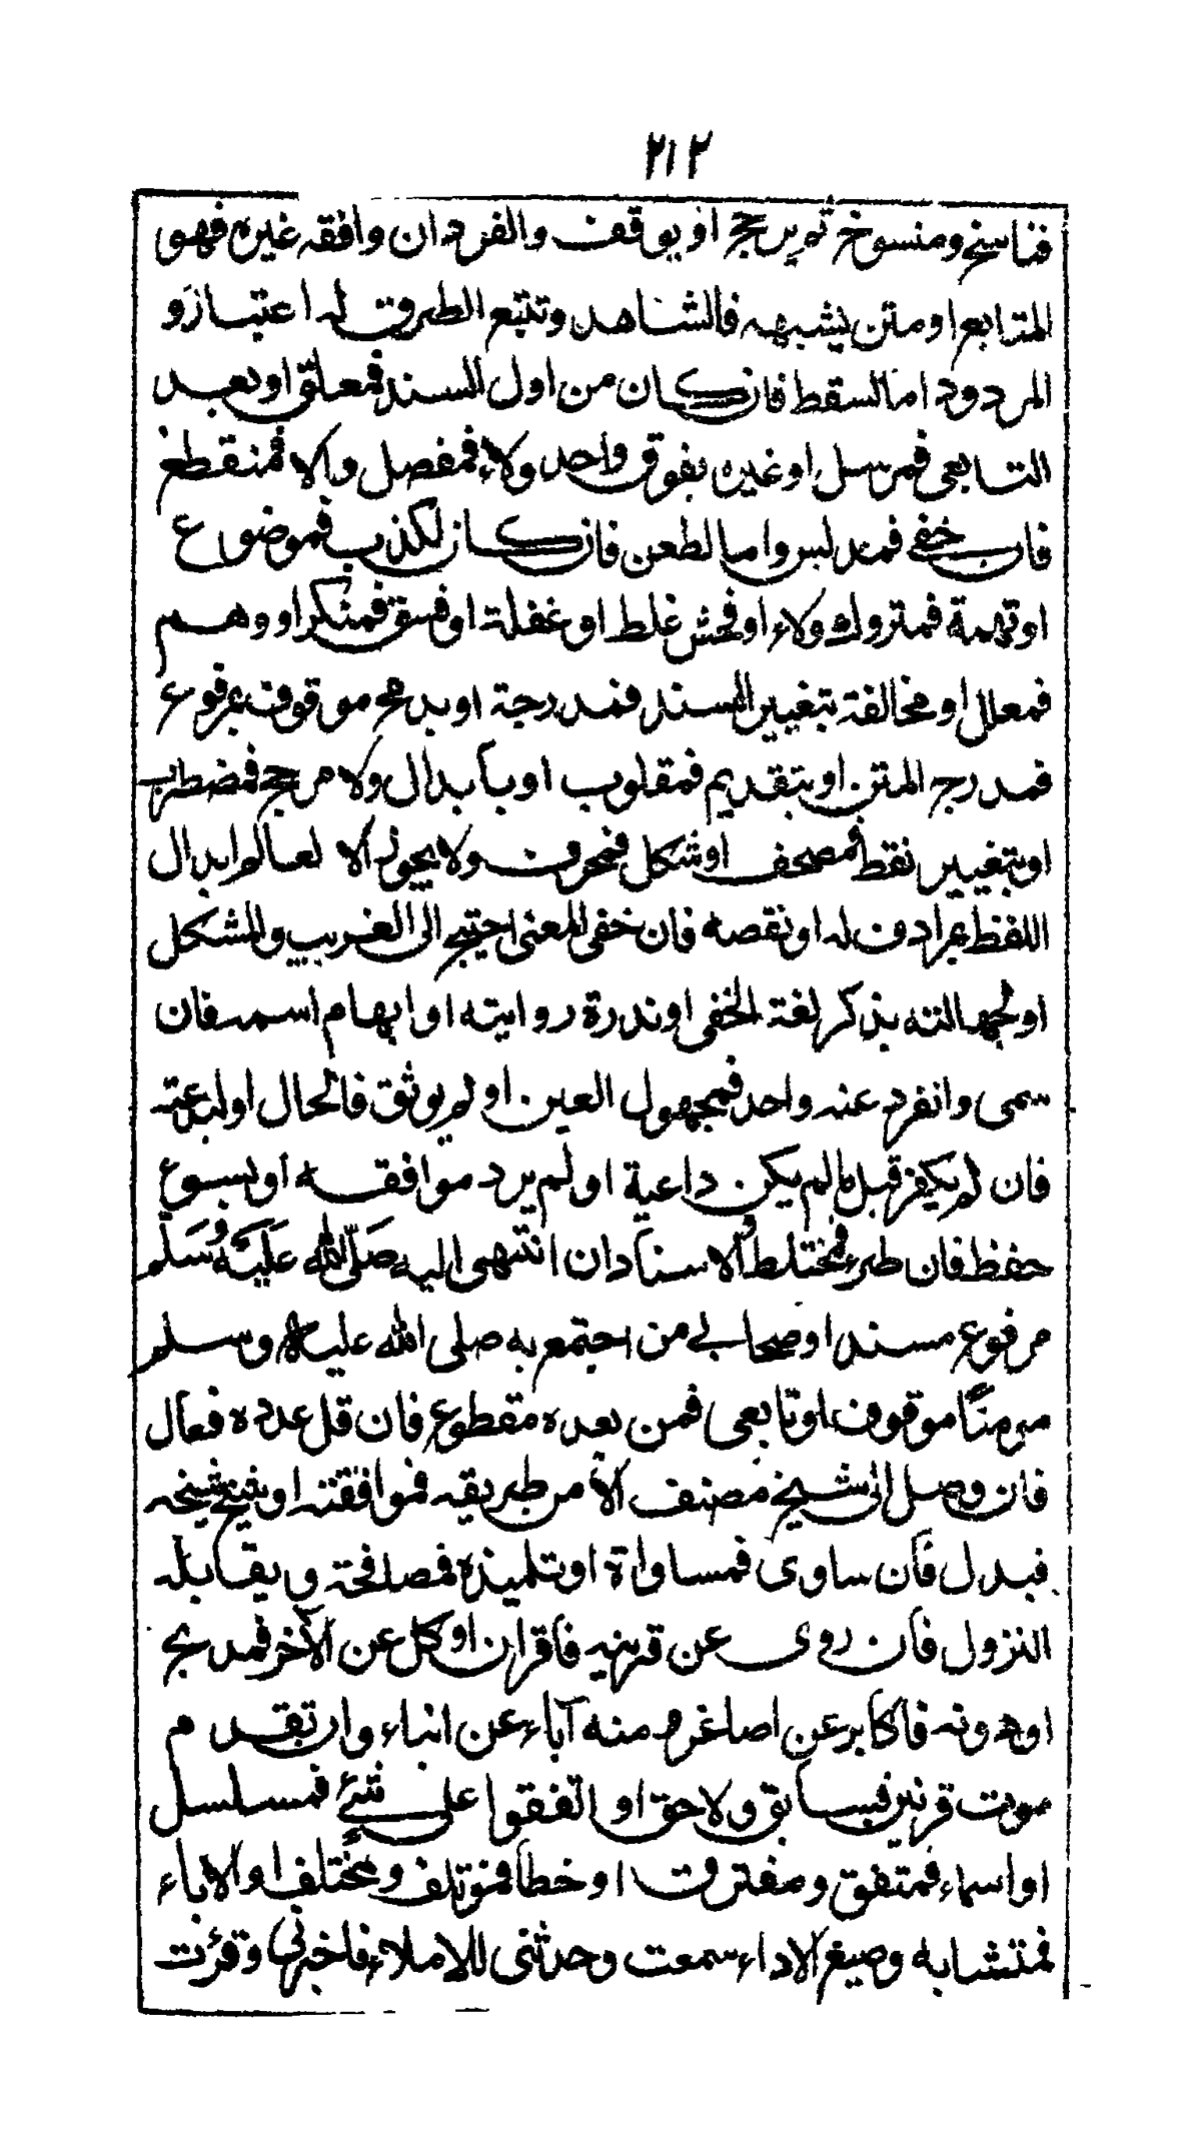 ٢١٢
فناسخ ومنسوخ ثم يرجح او يوقف والفرد ان وافقه غيره فهو
المتابع او متن يشبهه فالشاهد وتتبع الطرق له اعتبار و
المردود اما لسقط فان كان من اول السند فمعلق او بعد
التابعى فمرسل او غيره بفوق واحد ولاء فمفصل والا فمنقطع
فان خفى فمدلس واما لطعن فان كان لكذب فموضوع
او تهمة فمتروك ولاء او فحش غلط او غفلة او فسق فمنكر او وهم
فمعلل او مخالفة بتغيير السند فمدرجة او بدمج موقوف بمرفوع
فمدرج المتن او بتقديم فمقلوب او بابدال ولا مرجح فمضطرب
او بتغيير نقط فمصحف او شكل فمحرف ولا يجوز الا لعالم ابدال
اللفظ بمرادف له او نقصه فان خفى المعنى احتيج الى الغريب والمشكل
او لجهالته بذكر لغة الخفى او ندرة روايته او ابهام اسمه فان
سمى وانفرد عنه واحد فمجهول العين او لم يوثق فالحال او لبدعته
فان لم يكفر قبل ما لم يكن داعية او لم يرد موافقه او لسوء
حفظ فان طرء فمختلط والاسناد ان انتهى اليه صَلّى الله عَلَيْهِ وَسَلّم
مرفوع مسند او صحابى من اجتمع به صلى الله عليه وسلم
مومنًا موقوف او تابعى فمن بعده مقطوع فان قل عدده فعال
فان وصل الى شيخ مصنف لا من طريقه فموافقته او شيخ شيخه
فبدل فان ساوى فمساواة او تلميذه فمصافحة ويقابله
النزول فان روى عن قرينه فاقران او كل عن الآخر فمدبج
او دونه فاكابر عن اصاغر ومنه آباء عن ابناء وان تقدم
موت قرنين فسابق ولاحق او اتفقوا على شئ فمسلسل
او اسماء فمتفق ومفترق او خطا فموتلف ومختلف او الاباء
فمتشابه وصيغ الاداء سمعت وحدثنى للاملاء فاخبرنى وقرئت